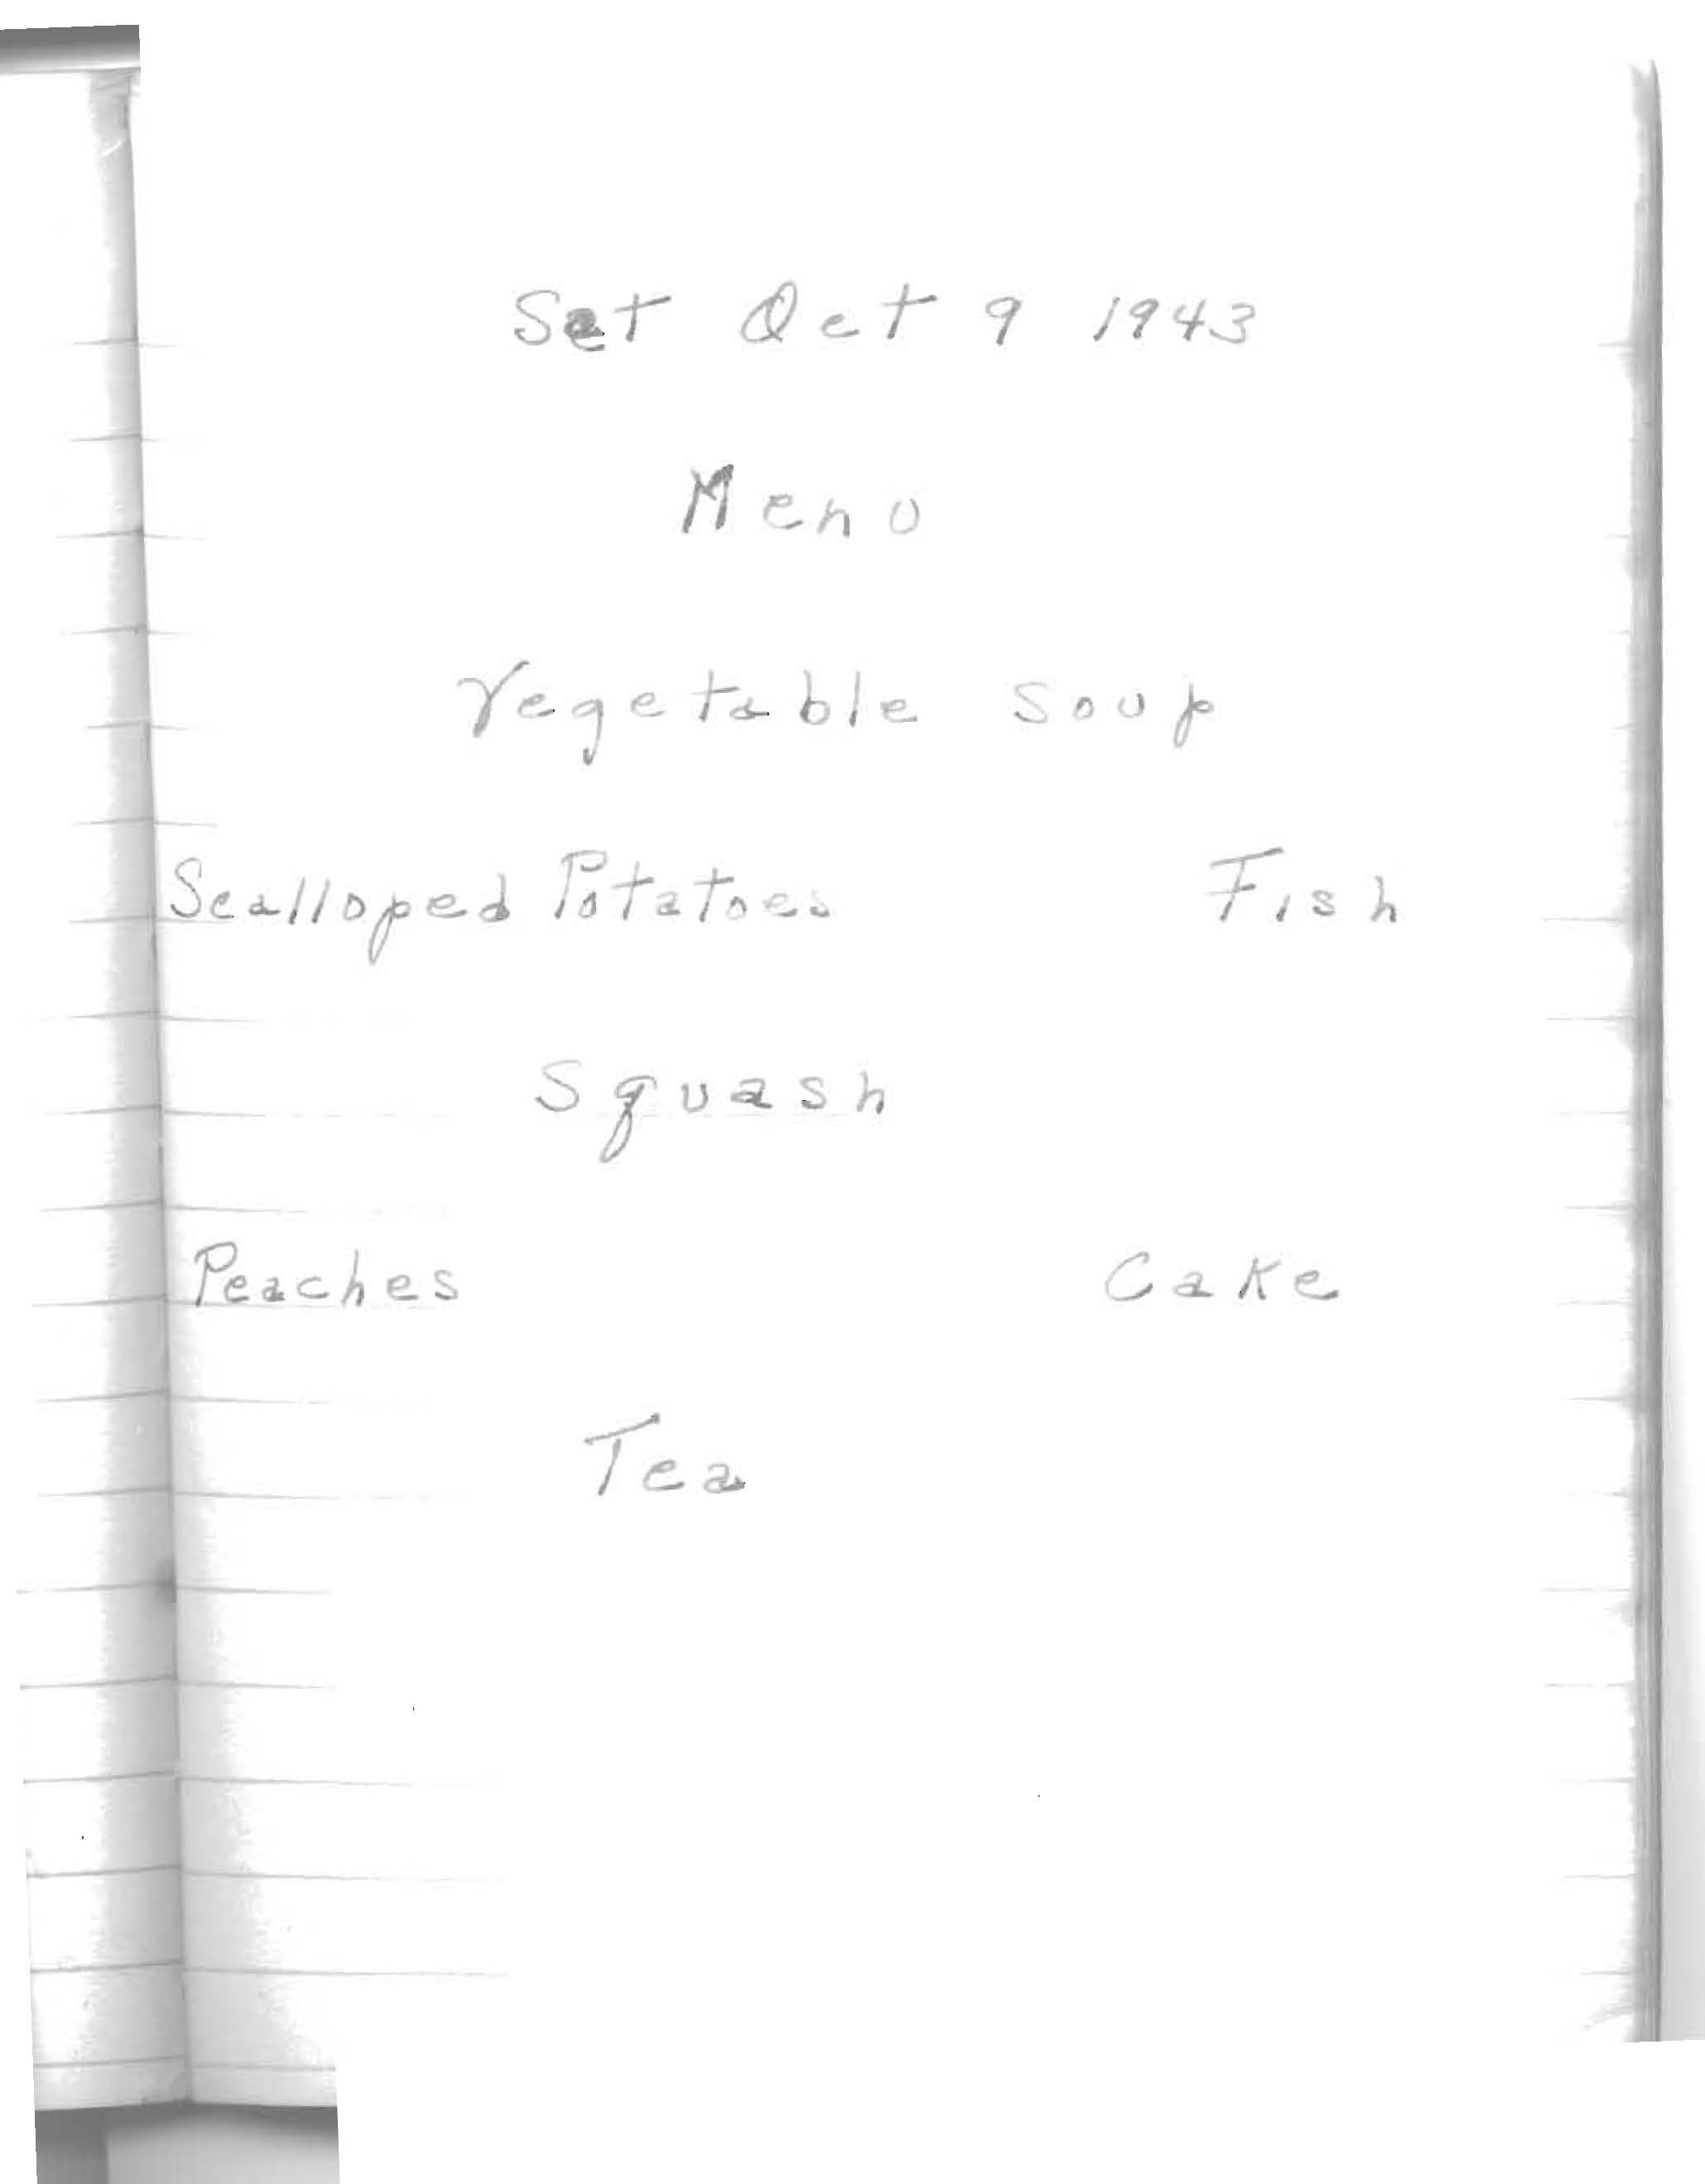 Sat Oct 9 1943
Menu
Vegetable Soup
Scalloped Potatoes Fish
Squash
Peaches Cake
Tea